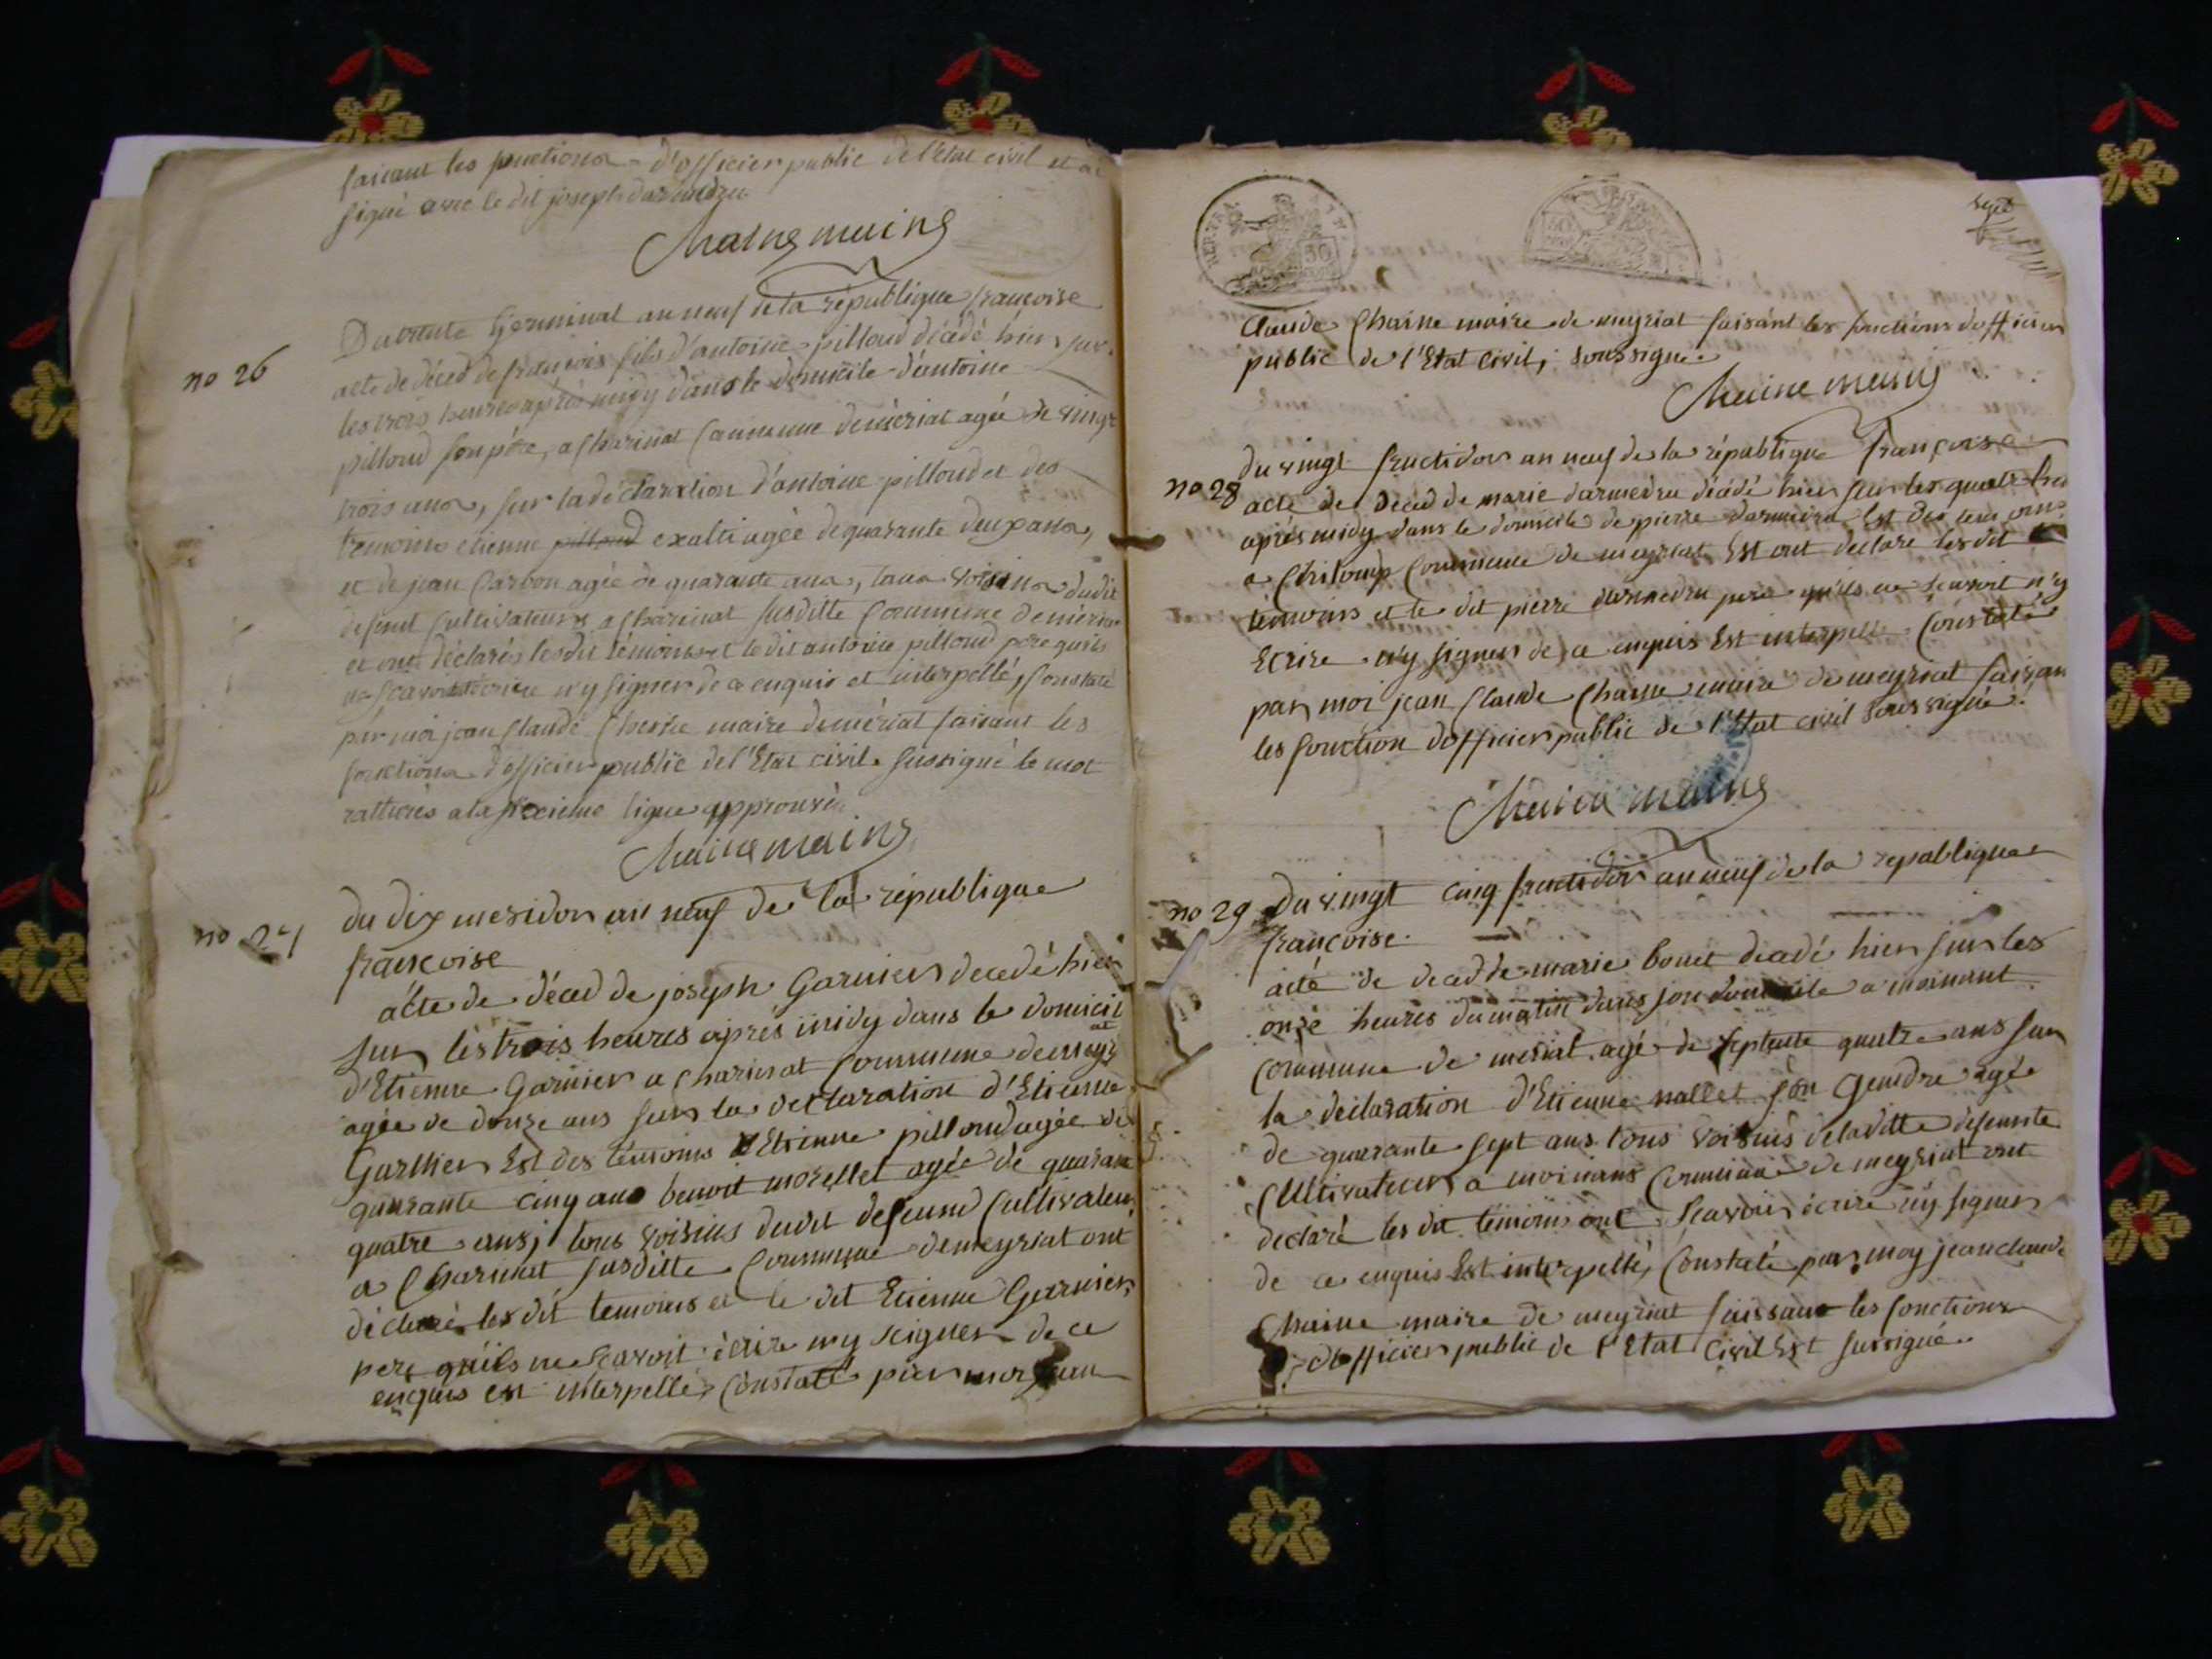 faisant les fonctions d'officier public de l'état civil et ai
signé avec le dit joseph darmedru
Chaine maire
no 26
Du trente Germinal an neuf de la république françoise
acte de décéd de françois fils d'antoine pilloud décédé hier sur
les trois heures après midy dans le domicile d'antoine
pilloud son père, a Charinat Commune de mériat agée de vingt
trois ans, sur la déclaration d'antoine pilloud et des
temoins etienne pilloud exalti agée de quarante deux ans,
et de jean Carbon agée de quarante ans, tous voisins dudit
defunt Cultivateurs a Charinat susditte Commune de mériat
et ont déclarés les dit témoins et le dit antoine pilloud père quils
ne scavoit écrire n'y signer de ce enquis et interpellé, Constaté
par moi jean Claude Chaine maire de mériat faisant les
fonctions d'officier public de l'état civil sussigné le mot
ratturés a la sixieme ligne approuvé
Chaine maire
no 27
du dix mesidor an neuf de la république
françoise
acte de décéd de joseph Garnier decedé hier
sur les trois heures après midy dans le domicil
d'Etienne Garnier a Charinat Commune de meyriat
agée de douze ans sur la declaration d'Etienne
Garnier Est des témoins Etienne pilloud agée de
quarante cinq ans benoit morellet agée de quarante
quatre ans, tous voisins dudit defeund Cultivateur
a Charinat susditte Commune de meyriat ont
déclaré les dit temoins et le dit Etienne Garnier
pere quils ne scavoit écrire n'y seigner de ce
enquis est interpellé, Constaté par moi jean
Claude Chaine maire de meyriat faisant les fonctions dofficier
public de l'Etat Civil, soussigné
Chaine maire
no 28
du vingt fructidor an neuf de la république françoise
acte de decéd de marie darmedru décédé hier sur les quatre
après midy dans le domicile de pierre darmedru Est des
a Commune de meyriat Est ont declaré les dit
témoins et le dit pierre darmedru pere quils ne scavoit n'y
Ecrire n'y signer de ce enquis Est interpellé Constaté
par moi jean Claude Chaine maire de meyriat faisan
les fonction dofficier public de l'Etat civil soussigné
Chaine maire
no 29
Du vingt cinq fructidor an neuf de la république
françoise
acté de decéd de marie bouet decédé hier sur les
onze heures du matin dans son domicile a moinant
Commune de meriat agé de septante quatre ans sur
la déclaration d'Etienne mallet son Gendre agée
de quarante sept ans tous voisins de laditte defeunte
Cultivateur a moinans Commune de meyriat ont
declaré les dit témoins ont scavoir écrire n'y signer
de ce enquis Est interpellé, Constaté par moy jean claude
Chaine maire de meyriat faissant les fonctions
dofficier public de l'Etat Civil Est sussigné